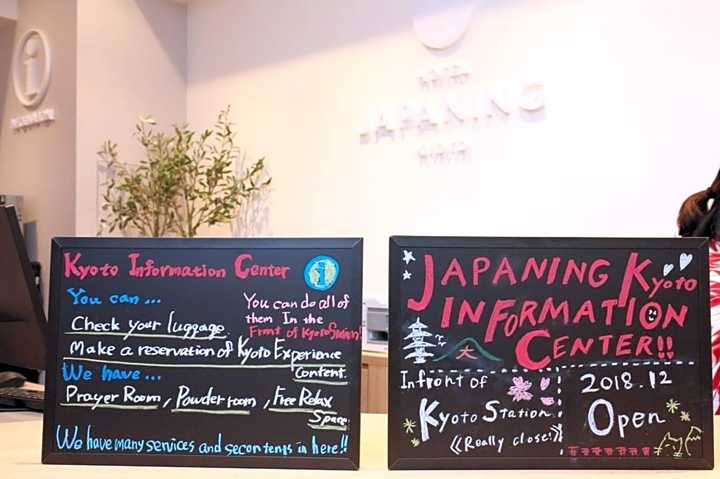 JAPANING
Kyoto Information Center
You can ...
Check your luggage
Make a reservation of Kyoto Experience
Content.
You can do all of
them In the
Front of Kyoto Station!
We have ...
Prayer Room, Powder room, Free Relax
Space.
We have many services and secontents in here!!
JAPANING Kyoto
INFORMATION
CENTER!!
大
Infront of
Kyoto Station.
《Really close!》
2018.12
Open